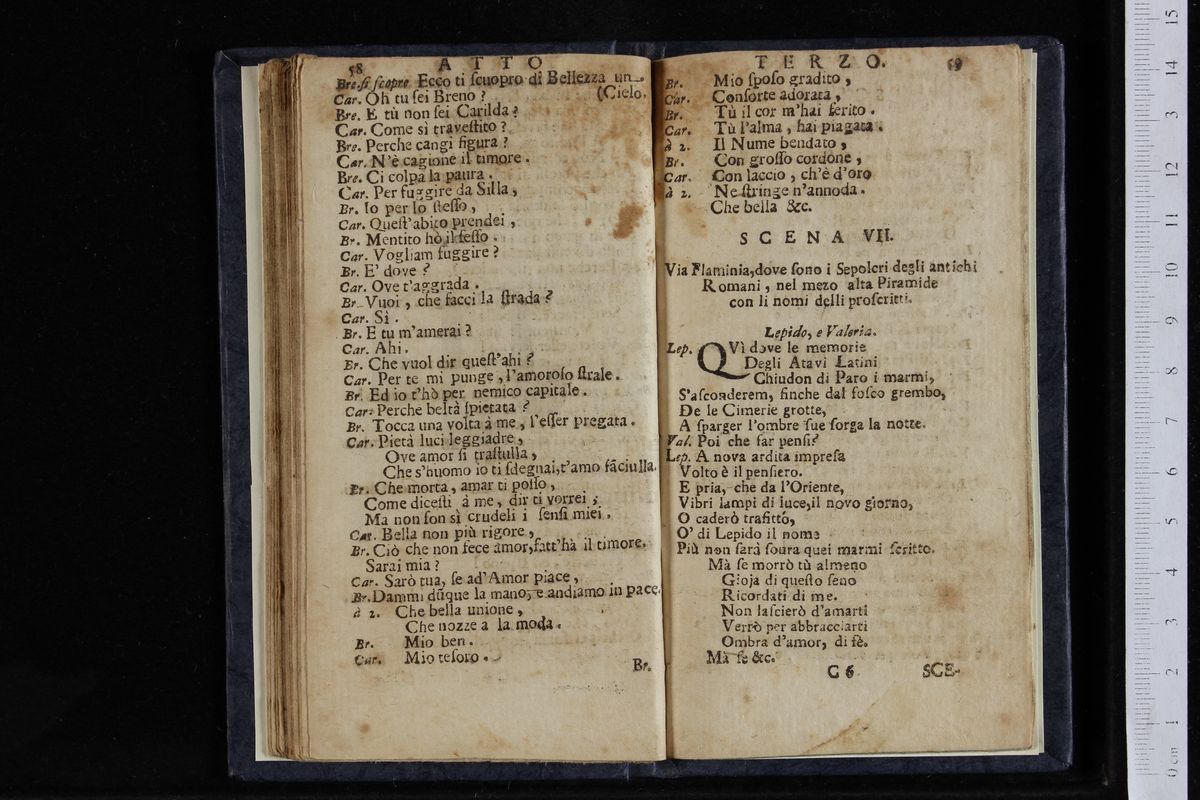 58 ATTO
Bre. si scopre Ecco ti scuopro di Bellezza un
(Cielo.
Car. Oh tu sei Breno ?
Bre. E tù non sei Carilda ?
Car. Come sì travestito ?
Bre. Perche cangi figura ?
Car. N'è cagione il timore .
Bre. Ci colpa la paura .
Car. Per fuggire da Silla ,
Br. Io per lo stesso ,
Car. Quest'abito prendei ,
Br. Mentito hò il sesso .
Car. Vogliam fuggire ?
Br. E' dove ?
Car. Ove t'aggrada .
Br. Vuoi , che facci la strada ?
Car. Sì .
Br. E tu m'amerai ?
Car. Ahi .
Br. Che vuol dir quest'ahi ?
Car. Per te mi punge , l'amoroso strale .
Br. Ed io t'hò per nemico capitale .
Car. Perche beltà spietata ?
Br. Tocca una volta à me , l'esser pregata .
Car. Pietà luci leggiadre ,
Ove amor si trastulla ,
Che s'huomo io ti sdegnai,t'amo fãciulla.
Br. Che morta , amar ti posso ,
Come dicesti à me , dir ti vorrei ;
Ma non son sì crudeli i sensi miei .
Car. Bella non più rigore ,
Br. Ciò che non fece amor,fatt'hà il timore.
Sarai mia ?
Car. Sarò tua, se ad'Amor piace ,
Br. Dammi dũque la mano, e andiamo in pace.
à 2. Che bella unione ,
Che nozze a la moda .
Br. Mio ben .
Car. Mio tesoro .
Br.
TERZO. 59
Br. Mio sposo gradito ,
Car. Consorte adorata ,
Br. Tù il cor m'hai ferito .
Car. Tù l'alma , hai piagata .
à 2. Il Nume bendato ,
Br. Con grosso cordone ,
Car. Con laccio , ch'è d'oro
à 2. Ne stringe n'annoda .
Che bella &c.
SCENA VII.
Via Flaminia,dove sono i Sepolcri degli antichi
Romani , nel mezo alta Piramide
con li nomi delli proscritti.
Lepido, e Valeria.
Lep. QVì dove le memorie
Degli Atavi Latini
Chiudon di Paro i marmi,
S'asconderem, finche dal fosco grembo,
De le Cimerie grotte,
A sparger l'ombre sue sorga la notte.
Val. Poi che far pensi?
Lep. A nova ardita impresa
Volto è il pensiero.
E pria, che da l'Oriente,
Vibri lampi di luce,il novo giorno,
O caderò trafitto,
O' di Lepido il nome
Più non sarà soura quei marmi scritto.
Mà se morrò tù almeno
Gioja di questo seno
Ricordati di me.
Non lascierò d'amarti
Verrò per abbracciarti
Ombra d'amor, di fè.
Mà se &c.
C 6 SCE-